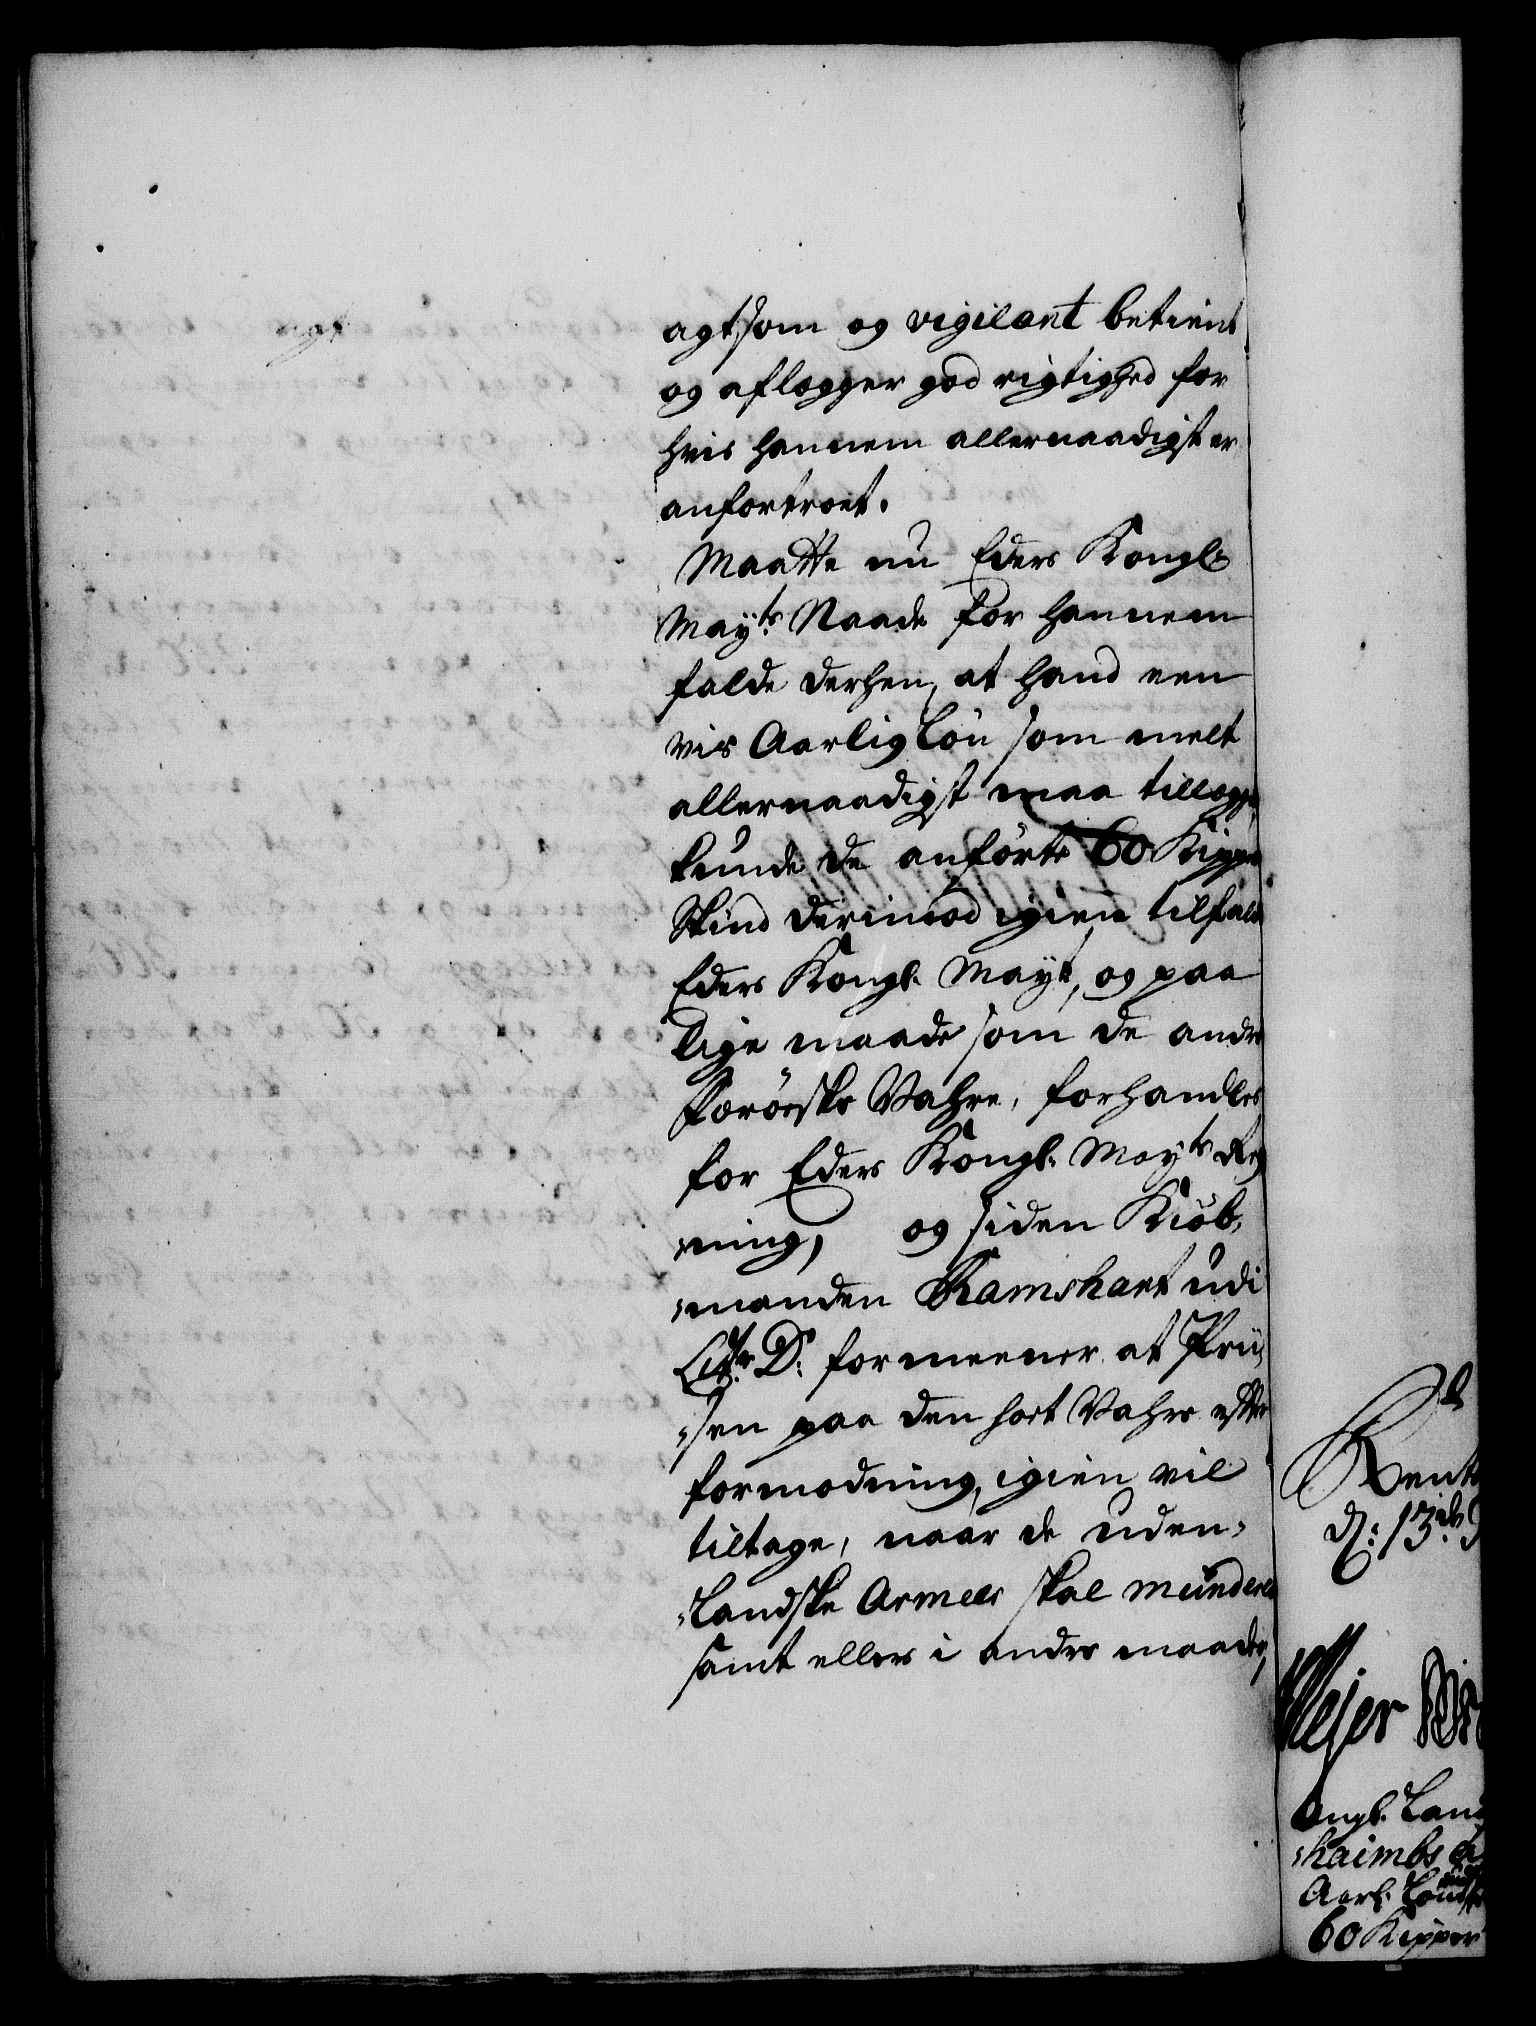 agtsom og vigilant betient
og aflegger god rigtighed for
hvis hannem allernaadigst er
anfortroet.
Maatte nu Eders Kongl:
Mayts: Naade for hannem
falde derhen, at hand een
vis Aarlig Løn som melt
allernaadigst maa tillegges
kunde de anførte 60 Kipper
Skind derimod igien tilfalde
Eders Kongl. Mayt, og paa
lige maade som de andre
Færøeske Vahre, forhandles
for Eders Kongl. Mayts Reg
-ning, og siden Kiøb-
-manden Ramshart udi
Litr: D: formeener at Prii-
-sen paa den sort Vahre efter
formodning, igien vil
tiltage, naar de uden-
-landske Armeer skal munderes
samt ellers i andre maader,
Rent
d: 13de
Kongl. Land
Aarl. Løn
60 Kipper